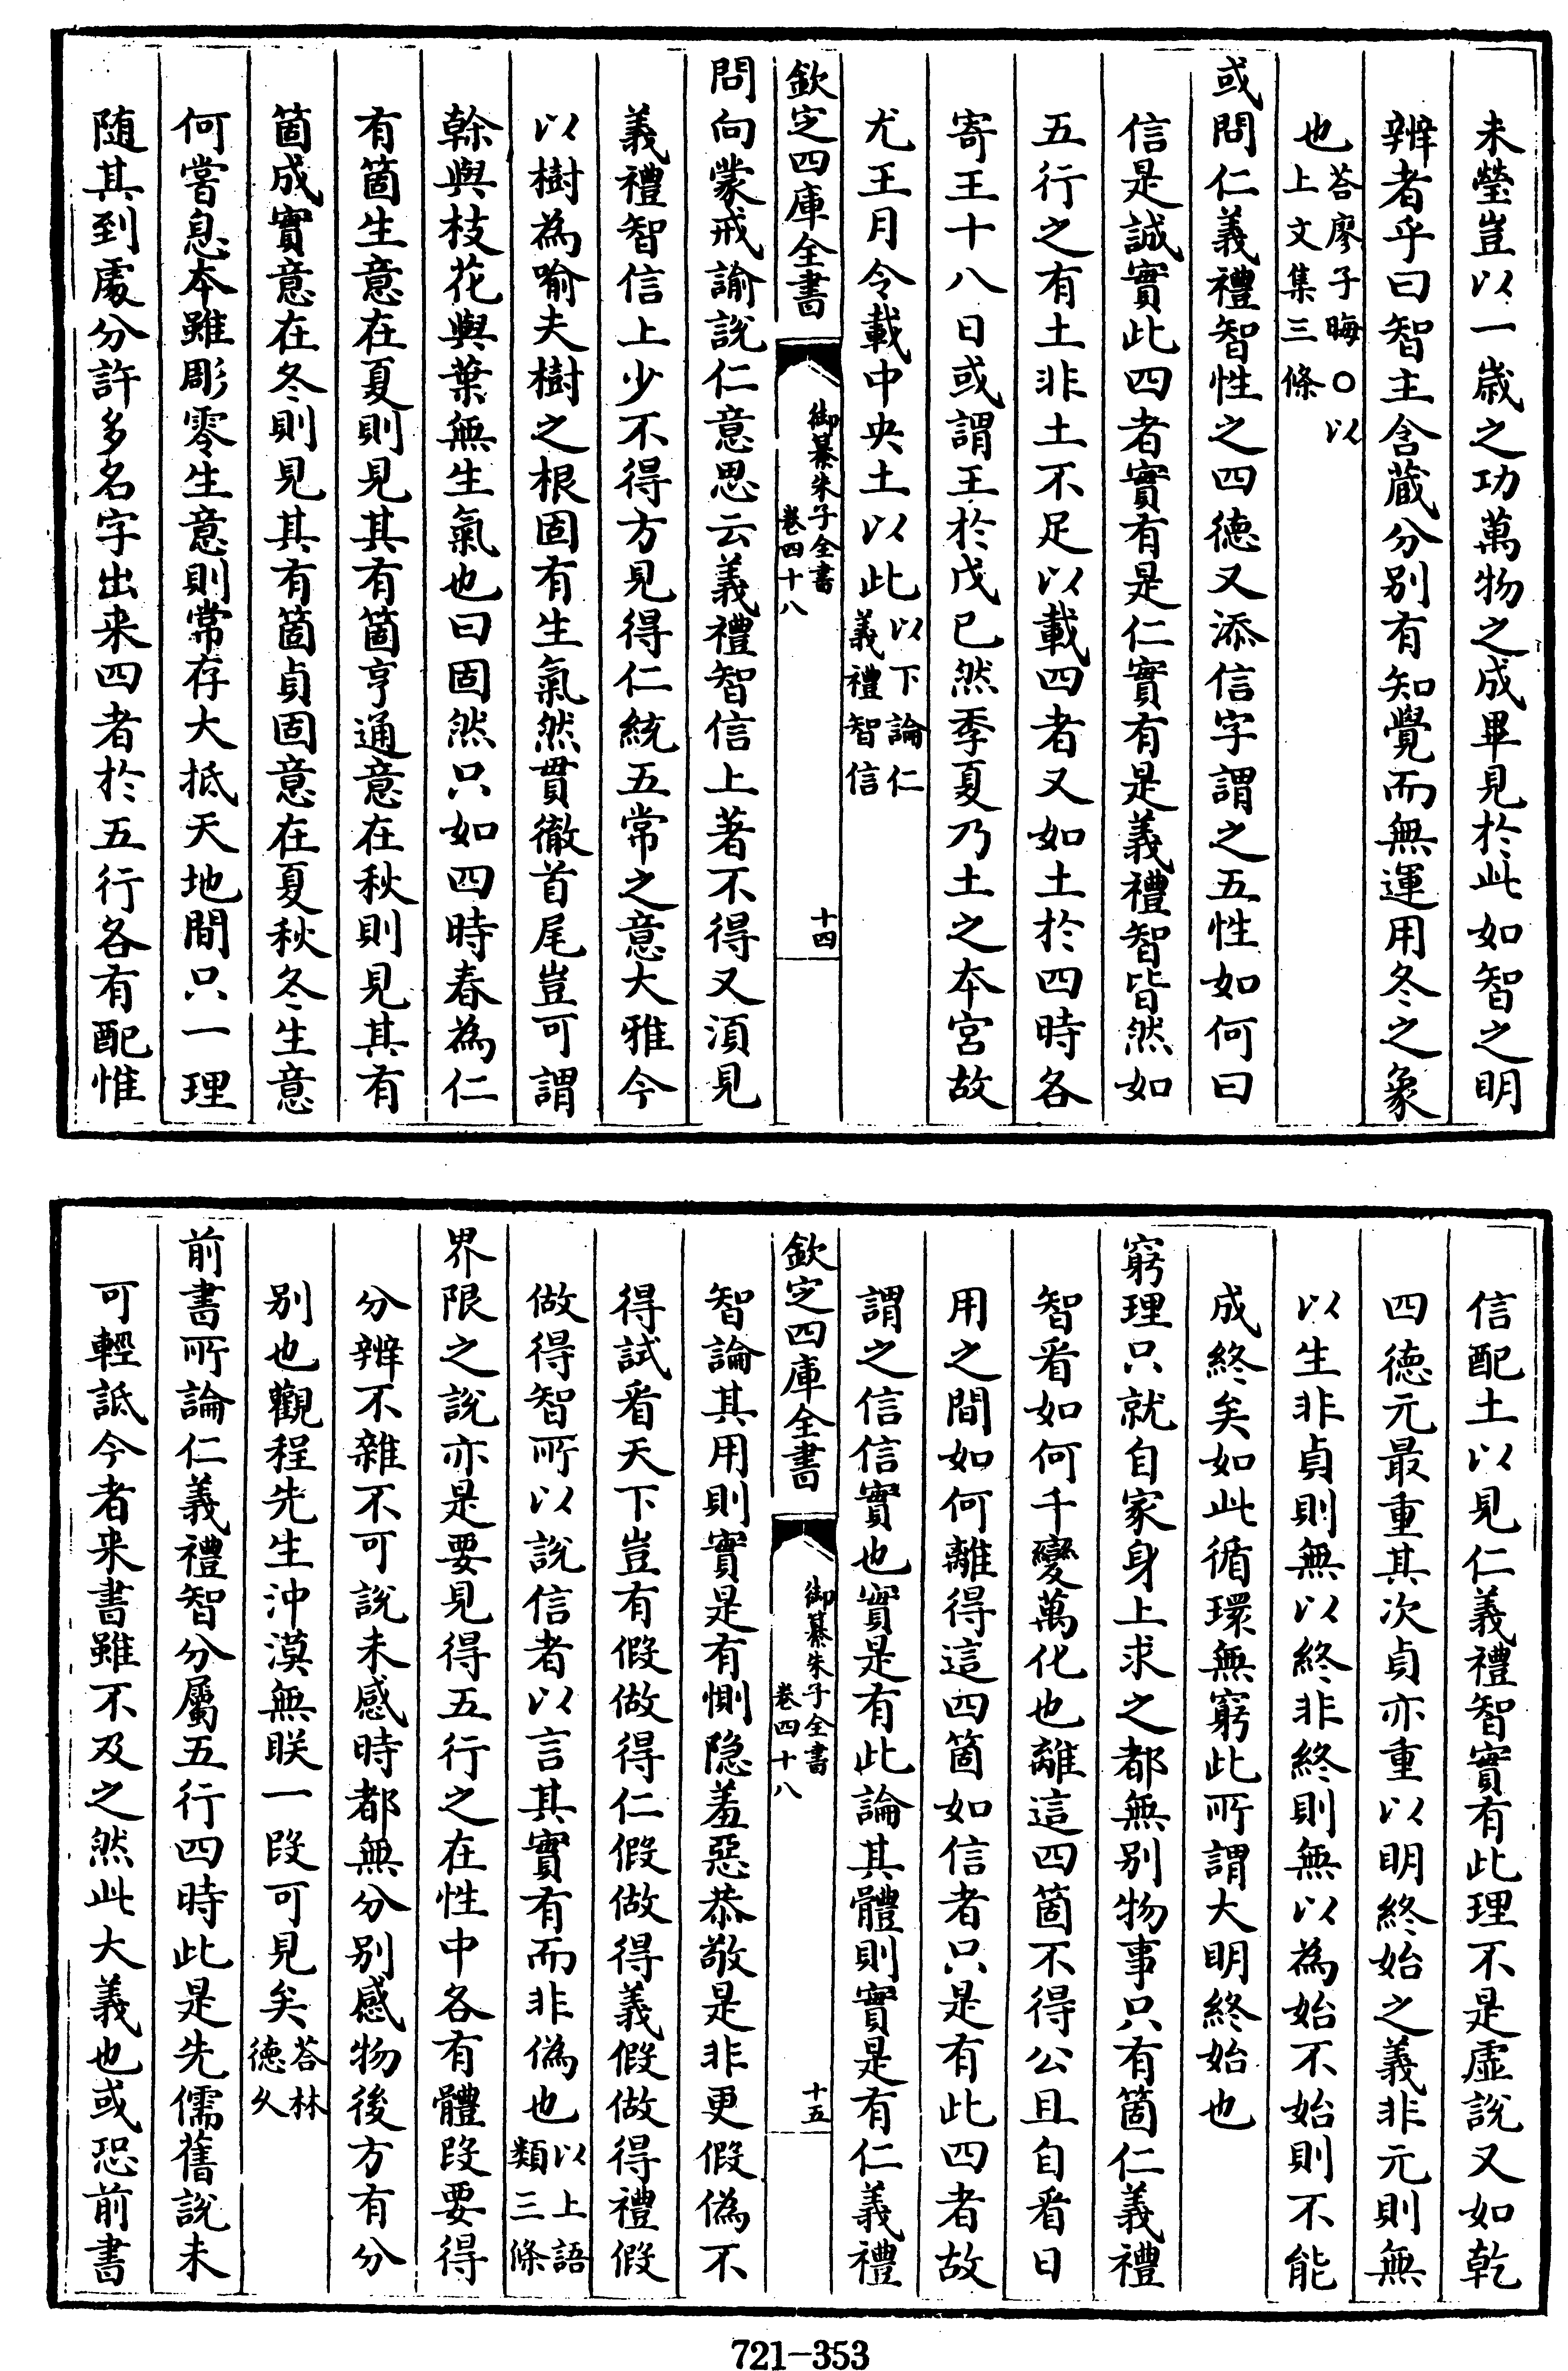 未瑩豈以一歳之功萬物之成畢見於此如智之明
辨者乎曰智主含蔵分别有知覺而無運用冬之象
也答廖子晦○以上文集三條
或問仁義禮智性之四德又添信字謂之五性如何曰
信是誠實此四者實有是仁實有是義禮智皆然如
五行之有土非土不足以載四者又如土於四時各
寄王十八日或謂王於戊已然季夏乃土之本宫故
尤王月令載中央土以此以下論仁義禮智信
欽定四庫全書
御纂朱子全書
卷四十八
十四
問向蒙戒諭說仁意思云義禮智信上著不得又須見
義禮智信上少不得方見得仁統五常之意大雅今
以樹為喻夫樹之根固有生氣然貫徹首尾豈可謂
榦與枝花與葉無生氣也曰固然只如四時春為仁
有箇生意在夏則見其有箇亨通意在秋則見其有
箇成實意在冬則見其有箇貞固意在夏秋冬生意
何嘗息本雖彫零生意則常存大抵天地間只一理
随其到處分許多名字出来四者於五行各有配惟
信配土以見仁義禮智實有此理不是虚說又如乾
四徳元最重其次貞亦重以明終始之義非元則無
以生非貞則無以終非終則無以為始不始則不能
成終矣如此循環無窮此所謂大明終始也
窮理只就自家身上求之都無别物事只有箇仁義禮
智看如何千變萬化也離這四箇不得公且自看日
用之間如何離得這四箇如信者只是有此四者故
謂之信信實也實是有此論其體則實是有仁義禮
欽定四庫全書
御纂朱子全書
卷四十八
十五
智論其用則實是有惻隐羞惡恭敬是非更假偽不
得試看天下豈有假做得仁假做得義假做得禮假
做得智所以說信者以言其實有而非偽也以上語類三條
界限之說亦是要見得五行之在性中各有體段要得
分辨不雜不可說未感時都無分别感物後方有分
别也觀程先生沖漠無朕一段可見矣答林德久
前書所論仁義禮智分屬五行四時此是先儒舊說未
可輕詆今者来書雖不及之然此大義也或恐前書
721-353